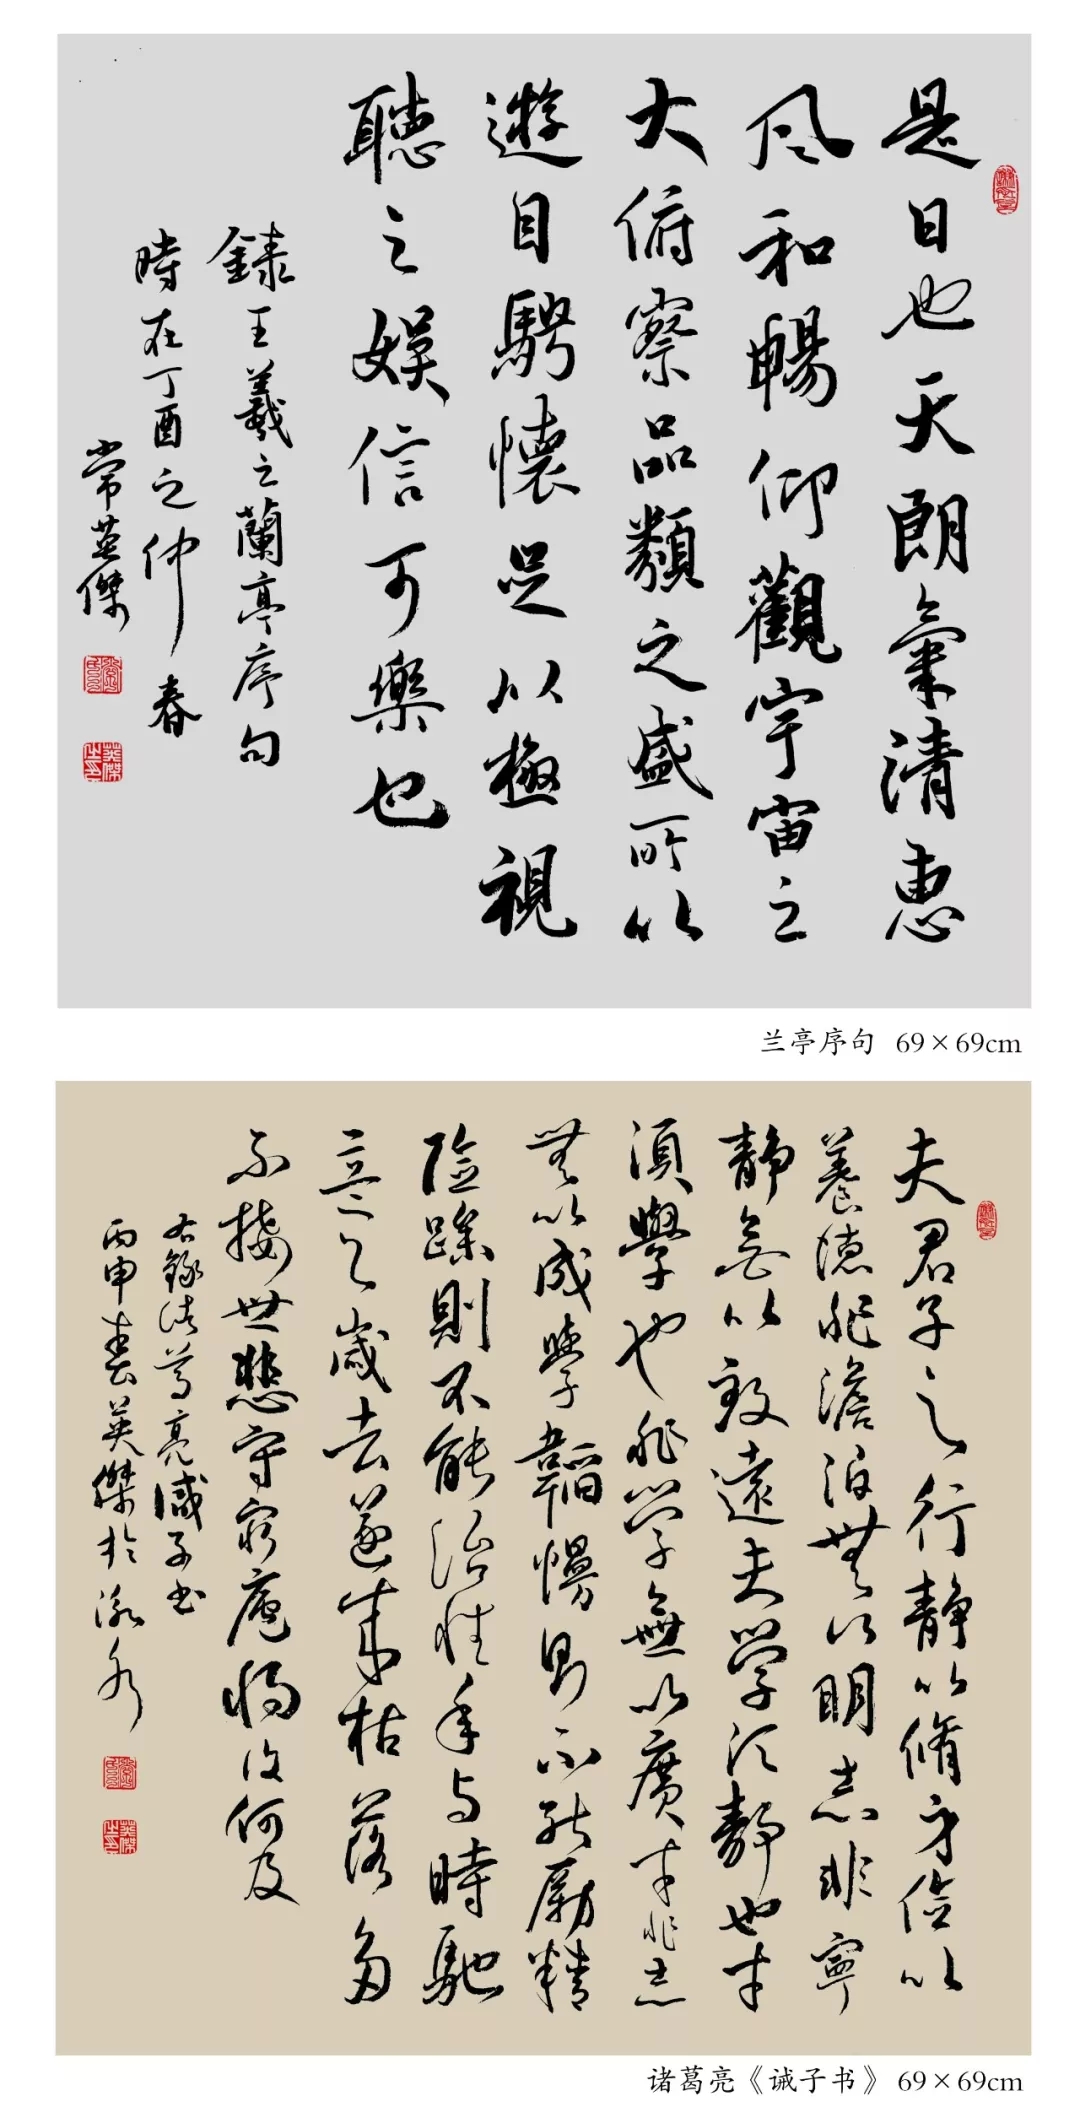 是日也天朗氣清惠
風和暢仰觀宇宙之
大俯察品類之盛所以
遊目騁懷足以極視
聽之娱信可樂也
錄王羲之蘭亭序句
時在丁酉之仲春
常英傑
兰亭序句 69×69cm
夫君子之行静以脩身儉以
養德非澹泊無以明志非寧
静無以致遠夫学須静也才
須學也非学無以廣才非志
無以成學韜慢則不能励精
险躁則不能治性年与時馳
意与歲去遂成枯落多
不接世悲守窮廬将復何及
右録诸葛亮誡子书
丙申春英傑於
诸葛亮《诫子书》69×69cm